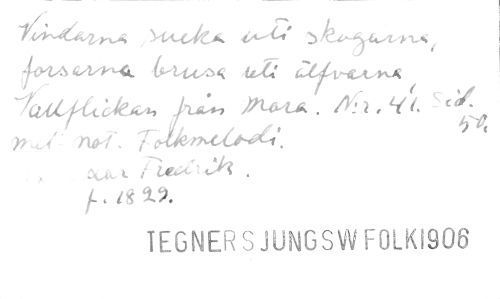 Vindarna sucka uti skogarna,
forsarna brusa uti älfvarna,
Vallflickan från Mora. N:r. 41. Sid. 50.
med not. Folkmelodi.
Fredrik.
f. 1829.
TEGNERSJUNGSWFOLK1906